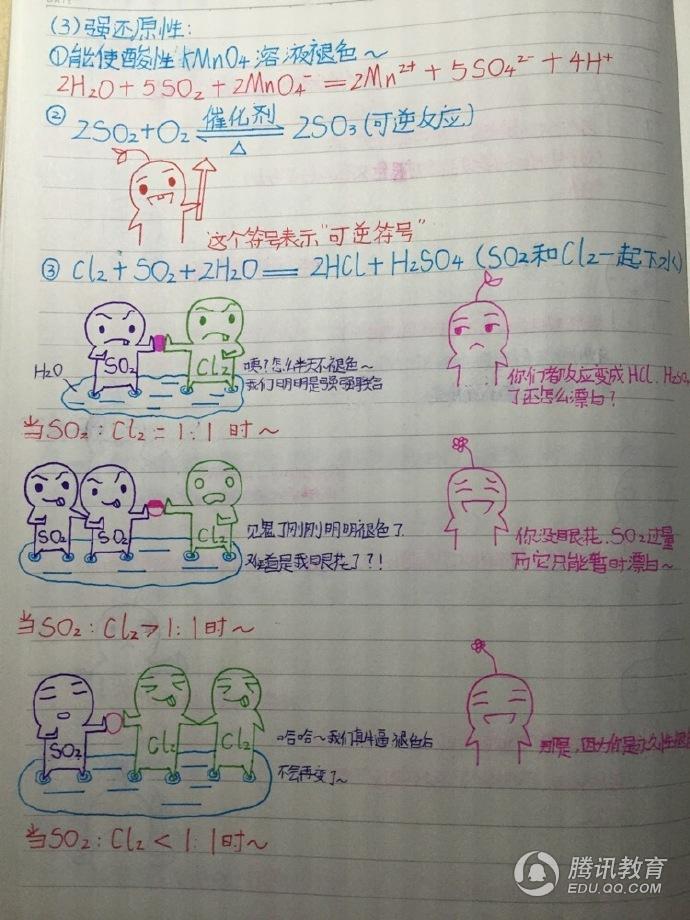 (3)强还原性:
①能使酸性KMnO4溶液褪色~
2H₂O+5SO₂+2MnO₄⁻=2Mn²⁺+5SO₄²⁻+4H⁺
② 2SO₂+O₂ 催化剂 △ 2SO₃(可逆反应)
这个符号表示"可逆符号"
③ Cl₂+SO₂+2H₂O=2HCl+H₂SO₄ (SO₂和Cl₂一起下水)
H₂O
SO₂
Cl₂
咦?怎么半天不褪色~
我们明明是强强联合
你们都反应变成HCl、H₂SO₄
了还怎么漂白?
当SO₂:Cl₂=1:1时~
SO₂
SO₂
Cl₂
见鬼了刚刚明明褪色了
难道是我眼花了?!
你没眼花、SO₂过量
而它只能暂时漂白~
当SO₂:Cl₂>1:1时~
SO₂
Cl₂
Cl₂
哈哈~我们真牛逼褪色后
不会再变了~
那是,因为你是永久性
当SO₂:Cl₂<1:1时~
腾讯教育
EDU.QQ.COM